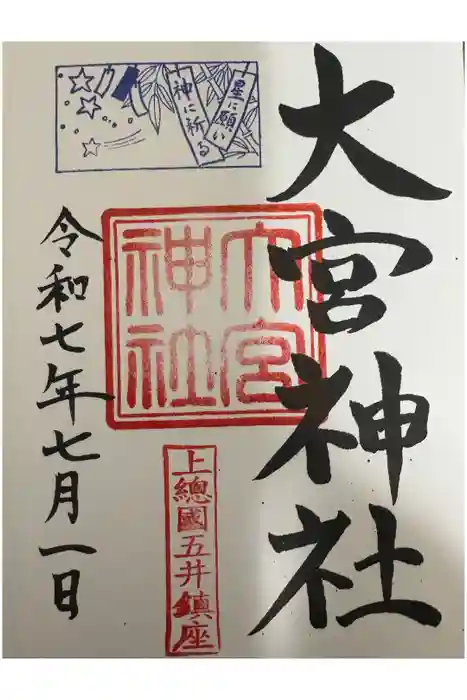 大宮神社
星に願い
神に祈る
大宮
神社
上總國五井鎮座
令和七年七月一日